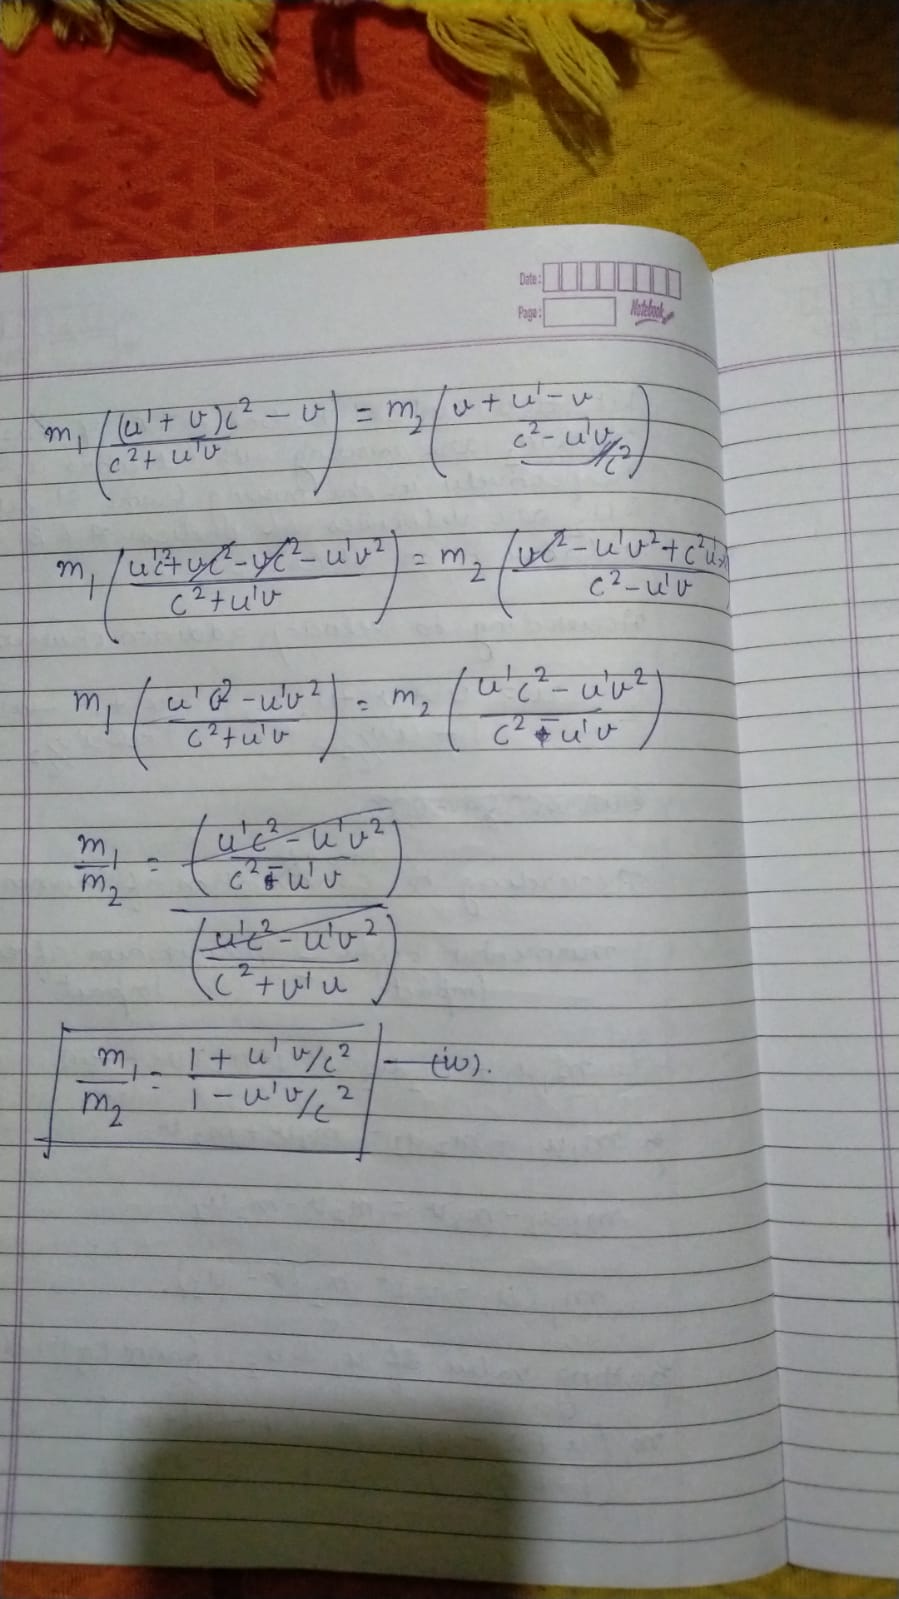 Date:
Page: Notebook
m₁ ((u' + v)c² / c² + u'v − v) = m₂ (v + u' − v / c² − u'v/c²)
m₁ (u'c² + vc² − vc² − u'v² / c² + u'v) = m₂ (vc² − u'v² + c²u' / c² − u'v)
m₁ (u'c² − u'v² / c² + u'v) = m₂ (u'c² − u'v² / c² − u'v)
m₁/m₂ = (u'c² − u'v² / c² − u'v) / (u'c² − u'v² / c² + u'v)
m₁/m₂ = 1 + u'v/c² / 1 − u'v/c² — (iv).